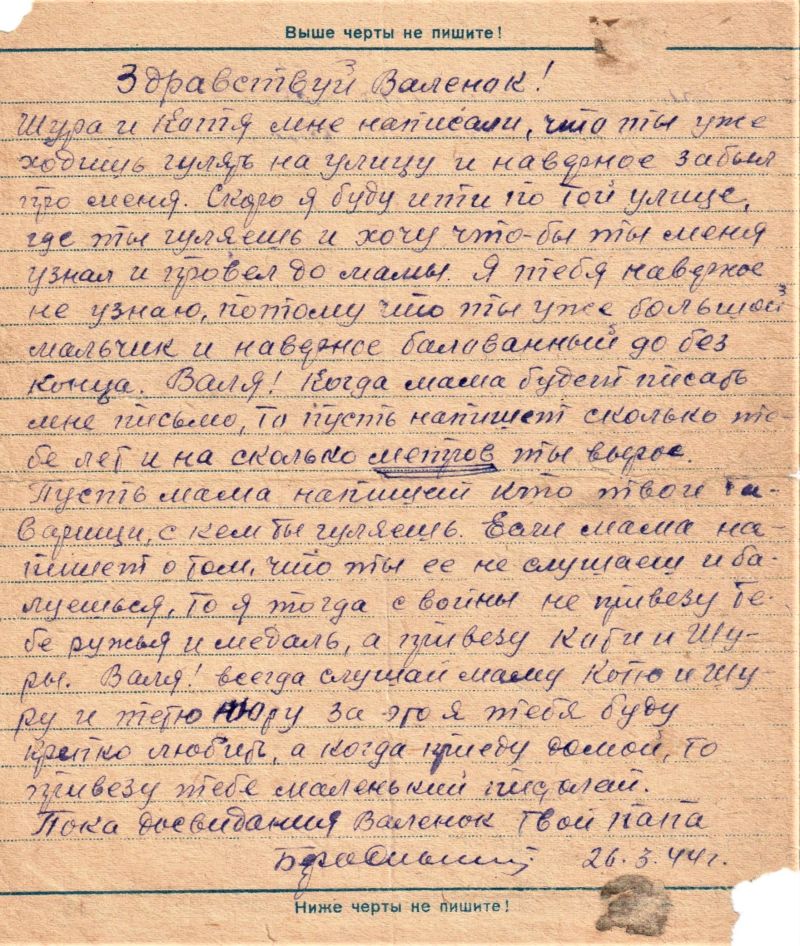 Выше черты не пишите!
Здравствуй Валенок!
Шура и Катя мне написали, что ты уже
ходишь гулять на улицу и наверное забыл
про меня. Скоро я буду ити по той улице,
где ты гуляешь и хочу что-бы ты меня
узнал и провел до мамы. Я тебя наверное
не узнаю, потому что ты уже большой
мальчик и наверное балаванный до без
конца. Валя! Когда мама будет писать
мне письмо, то пусть напишет сколько те-
бе лет и на сколько метров ты вырос.
Пусть мама напишет кто твои та-
варищи, с кем ты гуляешь. Если мама на-
пишет о том, что ты ее не слушаеш и ба-
луешься, то я тогда с войны не привезу те-
бе ружья и медаль, а привезу Кати и Шу-
ры. Валя! всегда слушай маму Катю и Шу-
ру и тетю за это я тебя буду
крепко любить, а когда приеду домой, то
привезу тебе маленький пистолет.
Пока досвидания Валенок твой папа
26.3.44г.
Ниже черты не пишите!